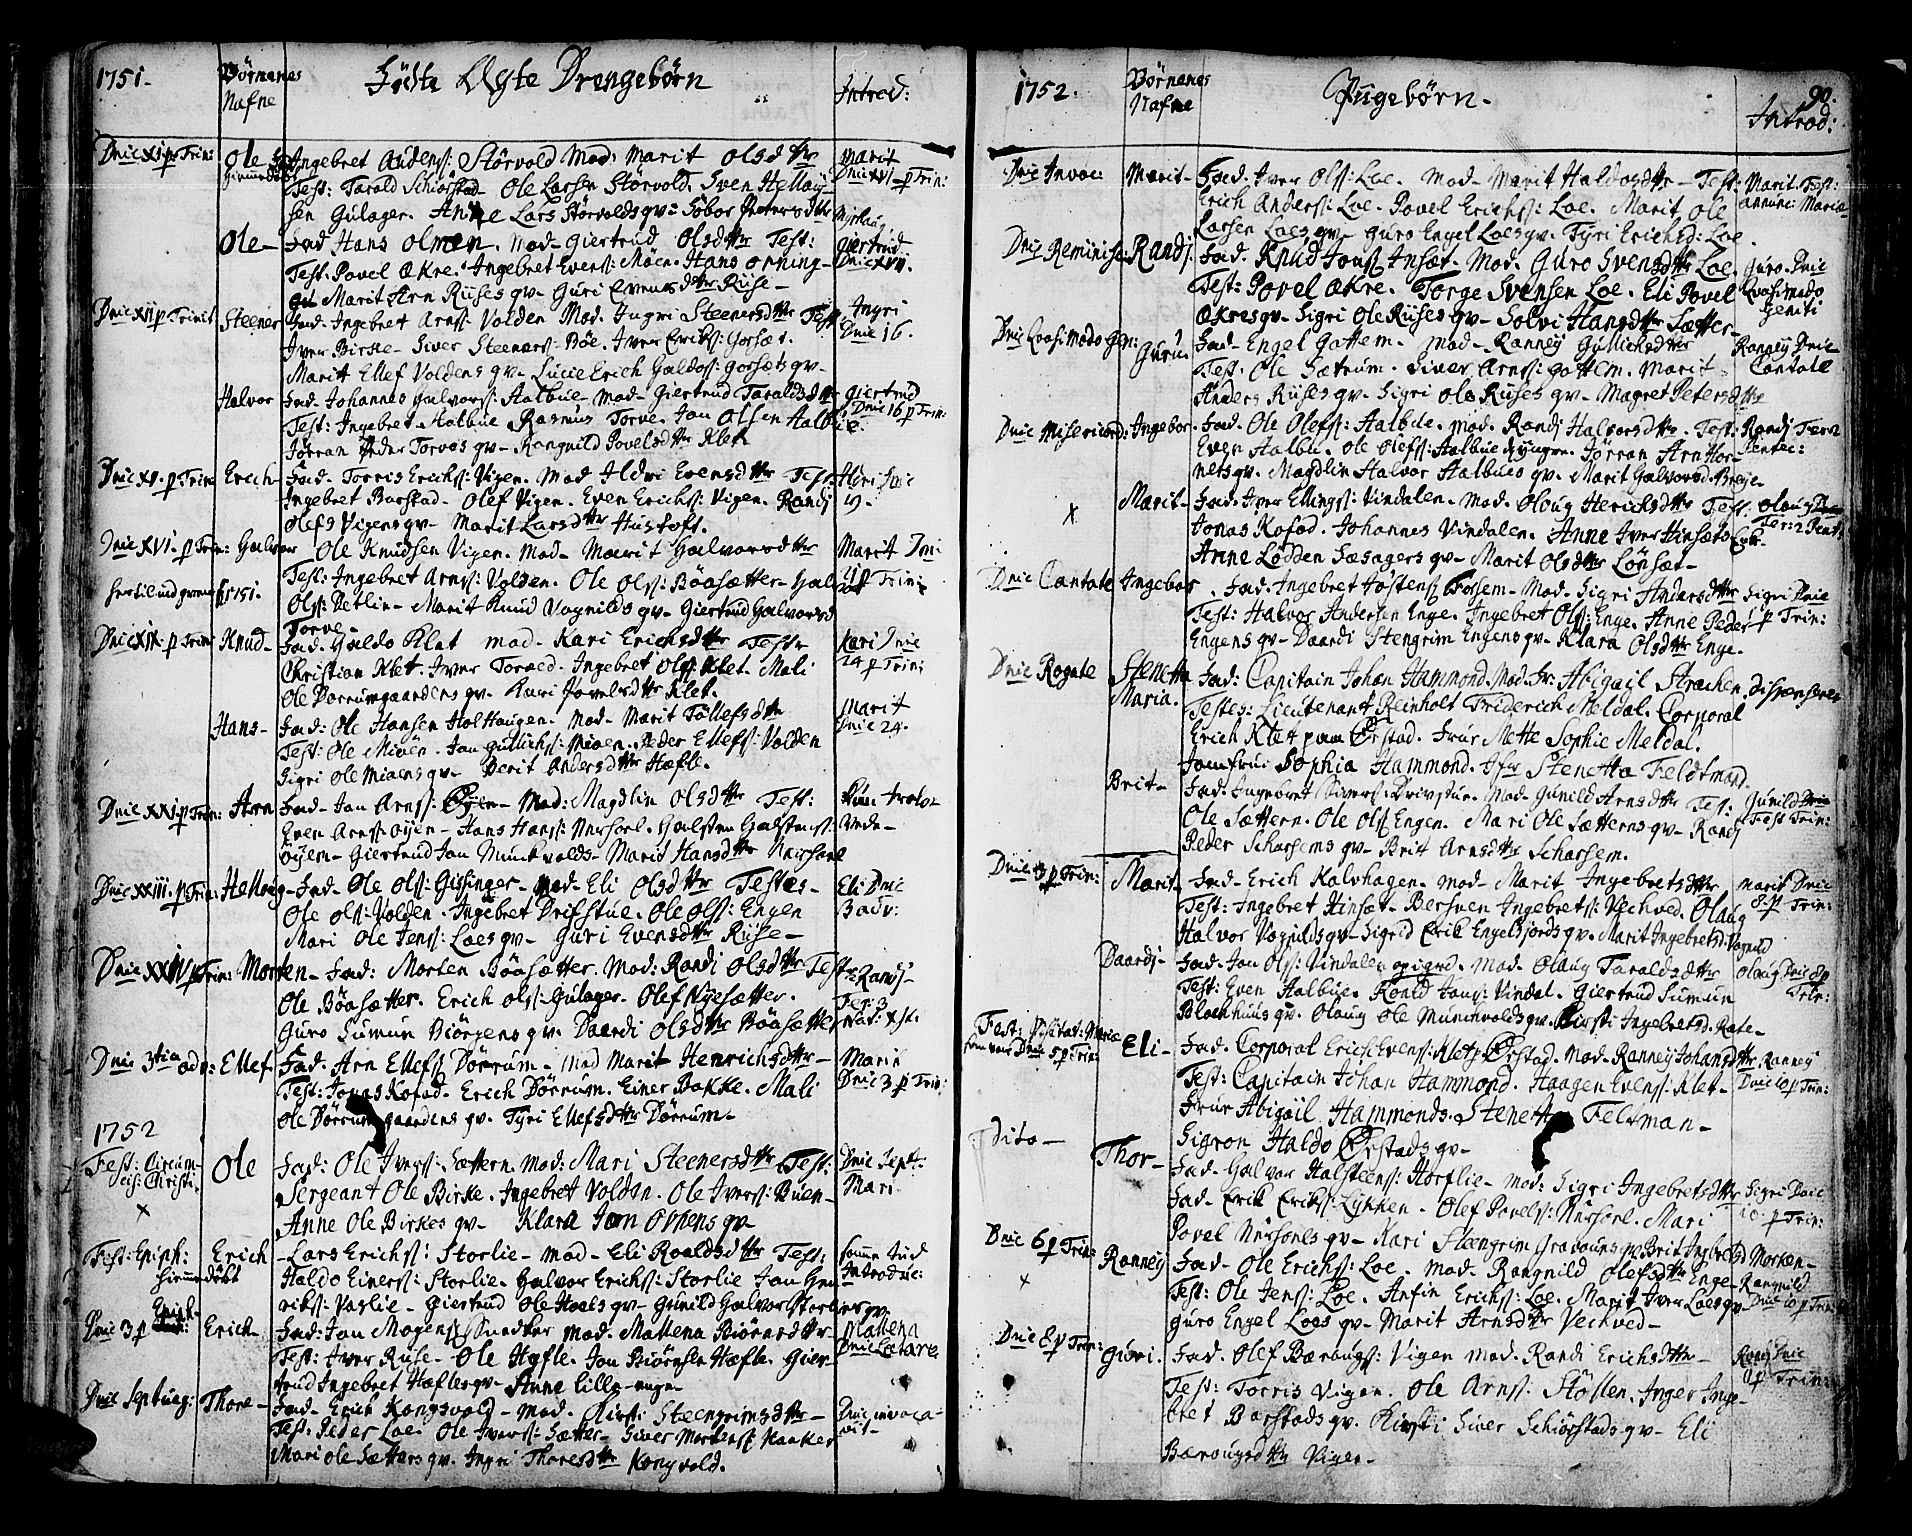 1751.
Börnenes
Nafne
Födte Ægte Drengebörn
Introd:
Dnic XI p Trin:
Ole
hiemmedöbt
Fad Ingebret Anders: Störvold Mod: Marit Olsdttr
Test: Tarald Schiörstad Ole Larsen Störvold. Sven Helloÿ-
sen Gulager. Anne Lars Störvolds qv: Sobor Pedersdttr
Marit
Dnic XVI p Trin:
Ole-
Fad Hans Olmen. mod- Giertrud Olsdttr Test:
Test: Povel Økre. Ingebret Evens: Moen. Hans
Marit Arn Riises qv- Guri Evensdttr Riise-
Giertrud
Dnic XVII.
Dnic XII p Trinit
Steener
Fad. Ingebret Arns: Volden Mod. Ingri Steenersdttr Test
Iver Birke- Siver Steeners: Böe. Iver Eriks: Gorset.
Maritt Ellef Voldens qv- Lucie Erich Haldos: Gorsets qv-
Ingri
Dnic 16.
Halvor
Fad- Johannes Halvors: Aalbue- mod- Giertrud Taraldsdttr
Test: Ingebret Aalbue Rasmus Torve. Jan Olsen Aalbue.
Jörran Peder Torves qv- Rangnild Povelsdttr Klet
Giertrud
Dnic 16 p Trin:
Dnic XV. p Trin
Erich
Fad- Torris Erichs: Vigen. Mod Ildri Evensdttr Test:
Ingebret Barstad. Olef Vigen. Even Erichs: Vigen. Randi
Olefs Vigens qv- Marit Larsdttr Hustoft.
Ildri Dnic
19.
Dnic XVI. p Trin:
Halvor
Ole Knudsen Vigen. Mod- Marit Halvorsdttr
Test: Ingebret Arns: Volden. Ole Ols: Böasætter-
Ols: Detlin- Marit Knud Vognilds qv- Giertrud Halvorsd
Torve-
Marit Dni
21 p Trin:
Dnic XIX. p Trin
Knud-
Fad. Haldo Klet mod- Kari Erichsdttr Test:
Christian Klet. Iver Toraed. Ingebret Ols: Klet. Mali
Ole Dorrumgaardens qv. Kari Povelsdttr Klet.
Kari Dnic
24 p Trin:
Hans-
Fad: Ole Hansen Hol Haugen. Mod- Marit Töllefsdttr
Test: Ole Mioen. Jan Gullichs: Mioen. Peder Ellefs: Volden
Sigri Ole Mioens qv- Berit Andersdttr Hæfle.
Marit
Dnic 24.
Dnic XXI p Trin:
Arn
Fad- Jan Arns: Öyen- Mod: Magdlin Olsdttr Test:
Even Arns: Oÿen- Hans Hans: Nerhoel. Halsten Halstens:
Oÿem- Giertrud Jan Munkvolds- Marit Hansdttr Nerhoel
Dnic XXIII. p Trin:
Hellvig-
Fad- Ole Ols: Gissinger- Mod- Eli Olsdttr Testes-
Ole Ols: Volden. Ingebret Drifstue. Ole Ols: Engen
Mari Ole Jens: Loes qv- Guri Evensdttr Riise-
Eli Dnic
Dnic XXIV p Trin:
Morten-
Fad: Morten Böasætter. Mod: Randi Olsdttr Test:
Ole Böasætter. Erich Ols: Gulager. Olef Nyesætter.
Guro Sumun Biörgens qv. Daardi Olsdttr Böasætter
Randi-
Fer: 3
Nat: Xsti.
Dnic 3tia adv:
Ellef-
Fad: Arn Ellefs Dörrum- Mod Marit Henrichsdttr-
Test: Jonas Kofod. Erich Dörrum. Einer Bakke. Mali
Ole Dörrumgaardens qv. Tyri Ellefsdttr Dörrum-
Marit
Dnic 3 p Trin:
1752
Fest: Circum-
cis: Christi.
x
Ole
Fad: Ole Ivers: Sættern. Mod: Mari Steenersdttr Test:
Sergeant Ole Birke. Ingebret Volden. Ole Ivers: Buen-
Anne Ole Birkes qv- Klara Jon Orkens qv
Dnic Sept-
Mari
Fest: Epiph:
hiemmedöbt
Erich
Lars Erichs: Storlie- Mod- Eli Roaldsdttr Test:
Haldo Einers: Storlie. Halvor Erichs: Storlie Jan Hen-
riks: Vaslie- Giertrud Ole Hoels qv- Gunild Halvor Storliens qv
Introduc:
Dnic 3 p Epiph:
Erich-
Fad: Jan Mogens: Snedker Mod. Mattena Biörnsdttr
Test: Iver Riise- Ole Hæfle. Jan Biörnsen Hæfle. Gier-
trud Ingebret Hæfles qv- Anne Lille-enge-
Mattena
Dnic Lætare
Dnic Septuag:
Thore-
Fad- Erich Kongsvold- Mod. Kirsti Steengrimsdttr-
Test: Peder Loe. Ole Ivers: Sætter- Siver Mortens: Haaker
Mari Ole Sætters qv. Ingri Thoresdttr Kongvold.
Dnic invoca-
vit-
1752.
Börnenes
Nafne
Pigebörn.
90.
Introd:
Dnic Invoc:
Marit-
Fad. Iver Ols: Loe. Mod- Marit Haldosdttr- Test:
Erich Anders: Loe. Povel Erichs: Loe. Marit Ole
Larsen Loes qv- Guro Engel Loes qv- Tyri Erichsd: Loe.
Marit. Fest:
annunc: Mariæ
Dnic Reminisc:
Randi.
Fad. Knud Jons: Insæt. Mod. Guro Svensdttr Loe.
Test: Povel Økre. Torge Svensen Loe. Eli Povel
Økres qv- Sigri Ole Riises qv- Solvi Hansdttr Sætter-
Guro. Dnic
Qvasimodo
Geniti
Dnic Qvasimodo Gen:
Guru.
Fad- Engel Gottem. Mod- Ranneÿ Gullichsdttr
Test: Ole Sætrum. Siver Arns: Gottem. Marit
Anders Riises qv- Sigri Ole Riises qv- Magret Petersdttr
Ranneÿ Dnic
Cantate
Dnic Misericord:
Ingebor-
Fad. Ole Olefs: Aalbue. Mod. Randi Halvorsdttr. Test:
Even Aalbu. Ole Olefs: Aalbue d yngre. Jörran Arn Hor-
nets qv- Magdlin Halvor Aalbues qv- Marit Halvorsd: Breje-
Randi Fer 2
Pentec:
x
Marit-
Fad: Iver Ellings: Vindalen. Mod. Oloug Herichsdttr Test.
Jonas Kofod. Johannes Vindalen. Anne Iver Hinsæts Enk-
Anne Lodden Sæsagers qv- Marit Olsdttr Lönsæt-
Oloug Dnic
Fer: 2 Pent:
Dnic Cantate
Ingebor
Fad. Ingebret Tostens: Torsem- Mod- Sigri Andersdttr
Test: Halvor Andersen Enge. Ingebret Ols: Enge. Anne Peder
Engens qv- Daardi Stengrim Engens qv- Klara Olsdttr Enge.
Sigri Dnic
p Trin:
Dnic Rogate
Stenetta
Maria.
Fad: Capitain Johan Hammond. Mod. Fr: Abigail Strachen.
Testes: Lieutenant Reinholt Friderich Meldal. Corporal
Erich Klet paa Ørstad. Frue Mette Sophie Meldal.
Jomfrue Sophia Hammond. Jfr Stenetta Feldtmand.
Brit-
Fad. Ingebret Sivers: Drivstue. Mod. Gunild Arnsdttr Tes:
Ole Sættern. Ole Ols: Engen. Mari Ole Sætterns qv- Randi
Peder Scharsems qv- Brit Arnsdttr Scharsem.
Gunild Dnic
Fest Trin:
Dnic 3 p Trin:
Marit-
Fad- Erich Kalvhagen. Mod- Marit Ingebretsdttr
Test: Ingebret Hinsæt- Bersven Ingebrets: Veckved. Oloug
Halvor Vognilds qv- Sigrid Erik Engelsfjords qv. Marit Ingebretsd. Vognild
Marit Dnic
8. p Trin:
Daardi-
Fad- Jan Ols: Vindalen. Mod. Oloug Taraldsdttr
Test: Even Aalbue. Roald Jans: Vindal. Giertrud Sumun
Blochhuus qv. Oloug Ole Munchvolds qv. Kirsti Ingebretsd. Rate-
Oloug Dnic 8 p
Trin:
Fest: Visitat: Mariæ
som var Dnic 5 p Trin:
Eli-
Fad. Corporal Erich Evens: Klet Ørstad. Mod- Ranneÿ Johansdttr
Test: Capitain Johan Hammond. Haagen Evens: Klet-
Frue Abigail Hammonds. Stenetta Feltman-
Sigron Haldo Ørstads qv-
Ranneÿ
Dnic 10 p Trin:
Dito-
Thor-
Fad- Halvor Halsteens: Horflie- Mod: Sigri Ingebretsdttr
Fad- Erik Eriks: Lykken. Olef Povels: Nerhoel. Mari
Povel Nerhoels qv- Kari Stængrim Gravauns qv. Brit Ingebretsd Morken-
Sigri Dnic
10. p Trin:
Dnic 6 p Trin:
x
Ranneÿ
Fad- Ole Erichs: Loe. Mod. Rangnild Olefsdttr Enge
Test: Ole Jens: Loe. Anfin Erichs: Loe. Marit Iver Loes qv-
Guro Engel Loes qv- Marit Arnsdttr Veckved-
Rangnild
Dnic 10 p Trin:
Dnic 8 p Trin:
Guri.
Fad. Olef Bærougs: Vigen Mod. Randi Erichsdttr-
Test: Torris Vigen. Ole Arns: Stölen. Inger Inge-
bret Barstads qv. Kirsti Siver Schiörstads qv- Eli
Bærougsdttr Vigen-
Randi Dnic
p Trin: